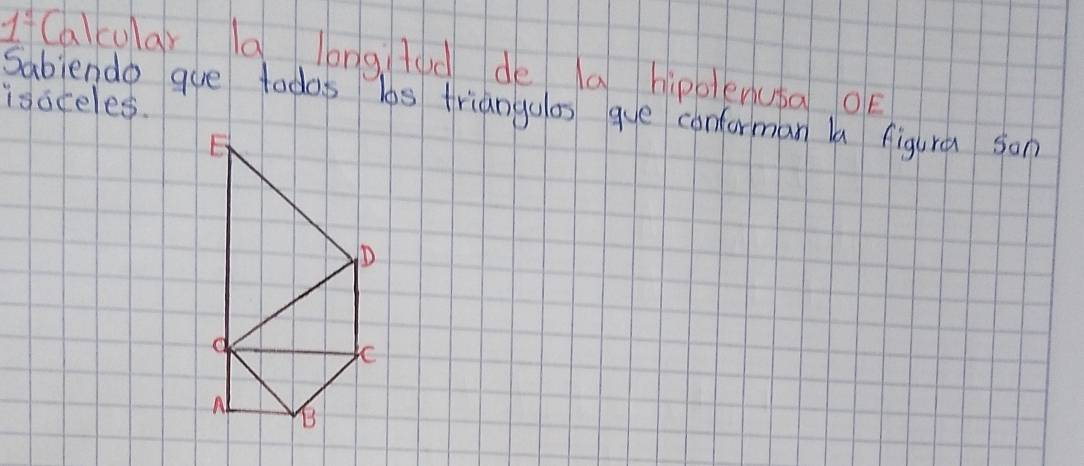 1º Calcular la longitud de la hipotenusa OE
Sabiendo que todos los triangulos que conforman la figura son
isóceles.
E
D
O
C
A
B